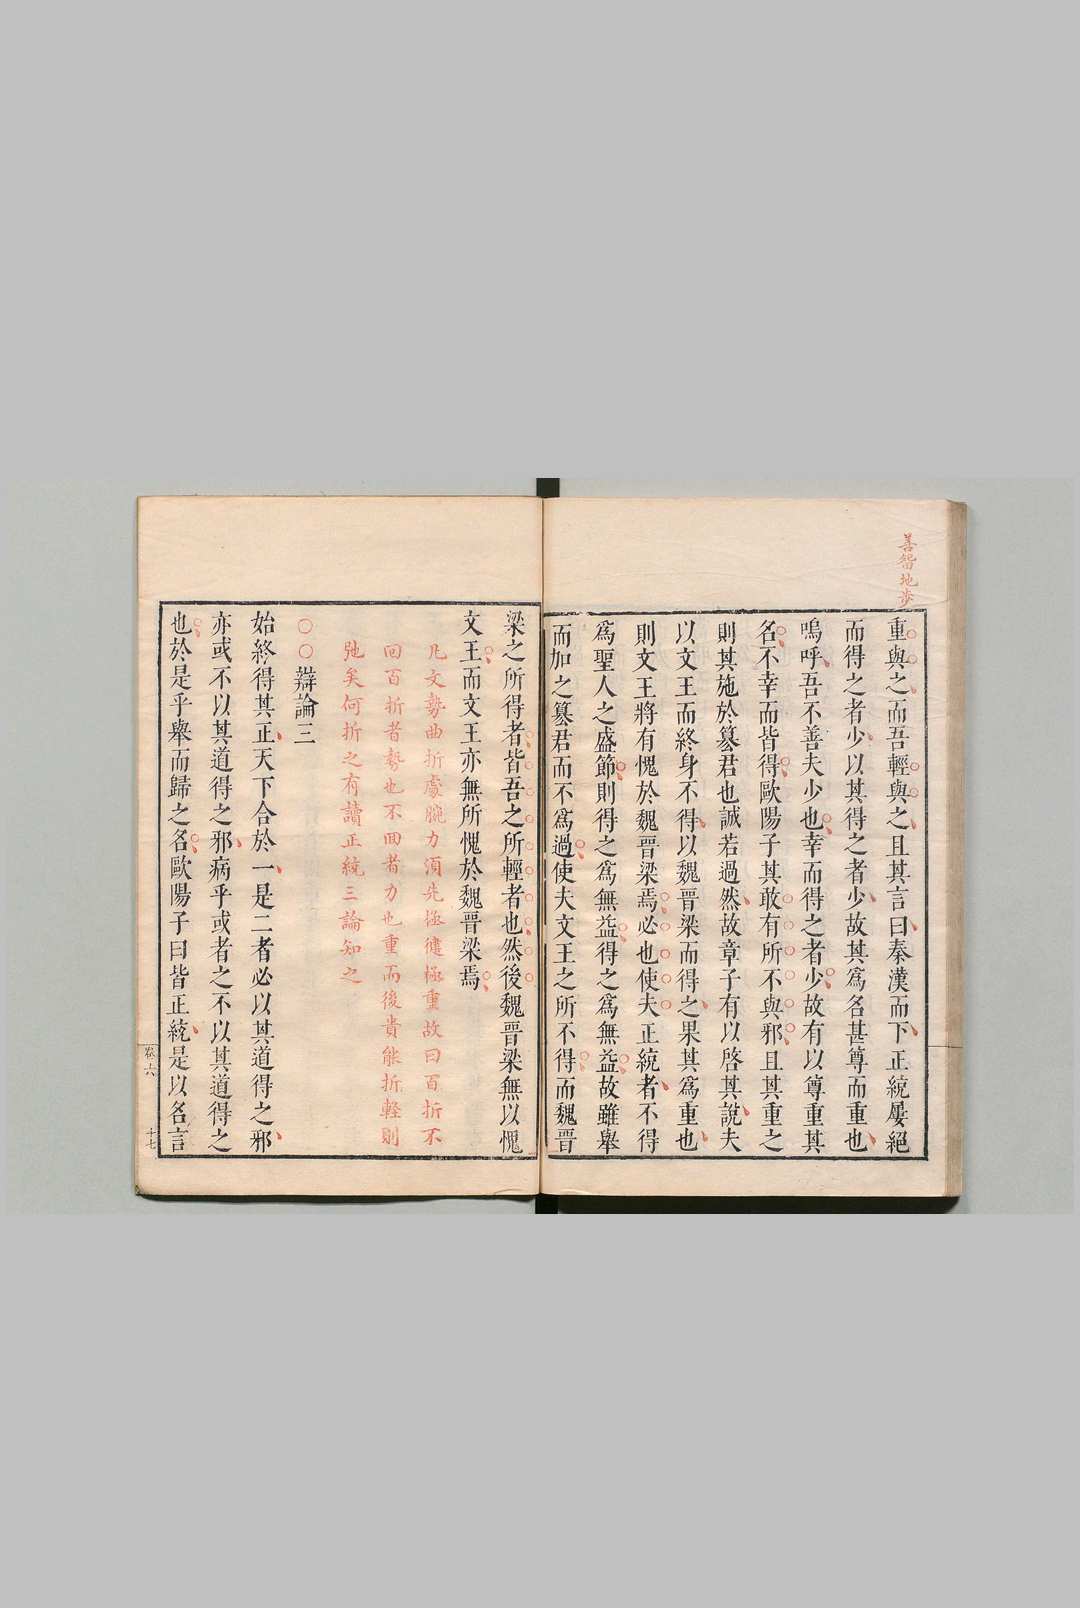 善智地步
重與之而吾輕與之且其言曰秦漢而下正統屢絕
而得之者少以其得之者少故其爲名甚尊而重也
嗚呼吾不善夫少也幸而得之者少故有以尊重其
名不幸而皆得歐陽子其敢有所不與邪且其重之
則其施於篡君也誠若過然故章子有以啓其說夫
以文王而終身不得以魏晋梁而得之果其爲重也
則文王將有愧於魏晋梁焉必也使夫正統者不得
爲聖人之盛節則得之爲無益得之爲無益故雖舉
而加之篡君而不爲過使夫文王之所不得而魏晋
梁之所得者皆吾之所輕者也然後魏晋梁無以愧
文王而文王亦無所愧於魏晋梁焉
凡文勢曲折處腕力須先極健極重故曰百折不
回百折者勢也不回者力也重而後貴能折輕則
弛矣何折之有讀正統三論知之
○○辯論三
始終得其正天下合於一是二者必以其道得之邪
亦或不以其道得之邪病乎或者之不以其道得之
也於是乎舉而歸之名歐陽子曰皆正統是以名言
卷六
十七